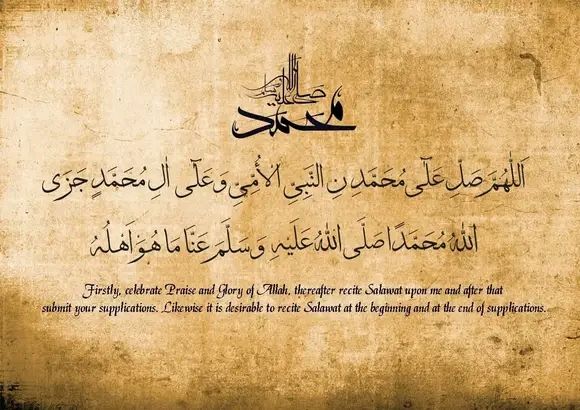 صلى الله عليه وسلم
محمد
اَللّٰهُمَّ صَلِّ عَلٰى مُحَمَّدِ نِ النَّبِيِّ الْاُمِّيِّ وَعَلٰٓى اٰلِ مُحَمَّدٍ جَزَى
اللّٰهُ مُحَمَّدًا صَلَّى اللّٰهُ عَلَيْهِ وَسَلَّمَ عَنَّا مَا هُوَ اَهْلُهُ
Firstly, celebrate Praise and Glory of Allah, thereafter recite Salawat upon me and after that
submit your supplications. Likewise it is desirable to recite Salawat at the beginning and at the end of supplications.